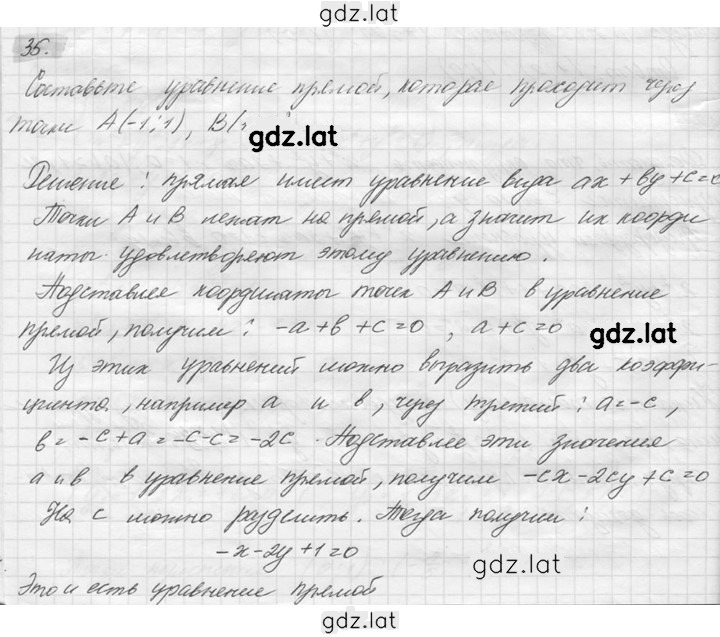 gdz.lat
35.
Составьте уравнение прямой, которая проходит через
точки A(-1;1), B(1
gdz.lat
Решение: прямая имеет уравнение вида ax+by+c=0
Точки A и B лежат на прямой, а значит их коорди
наты удовлетворяют этому уравнению.
Подставляя координаты точек A и B в уравнение
прямой, получим: -a+b+c=0, a+c=0
gdz.lat
Из этих уравнений можно выразить два коэффи-
циента, например a и b, через третий: a=-c,
b=-c+a=-c-c=-2c. Подставляя эти значения
a и b в уравнение прямой, получим -cx-2cy+c=0
На c можно разделить. Тогда получим:
-x-2y+1=0
gdz.lat
Это и есть уравнение прямой
gdz.lat